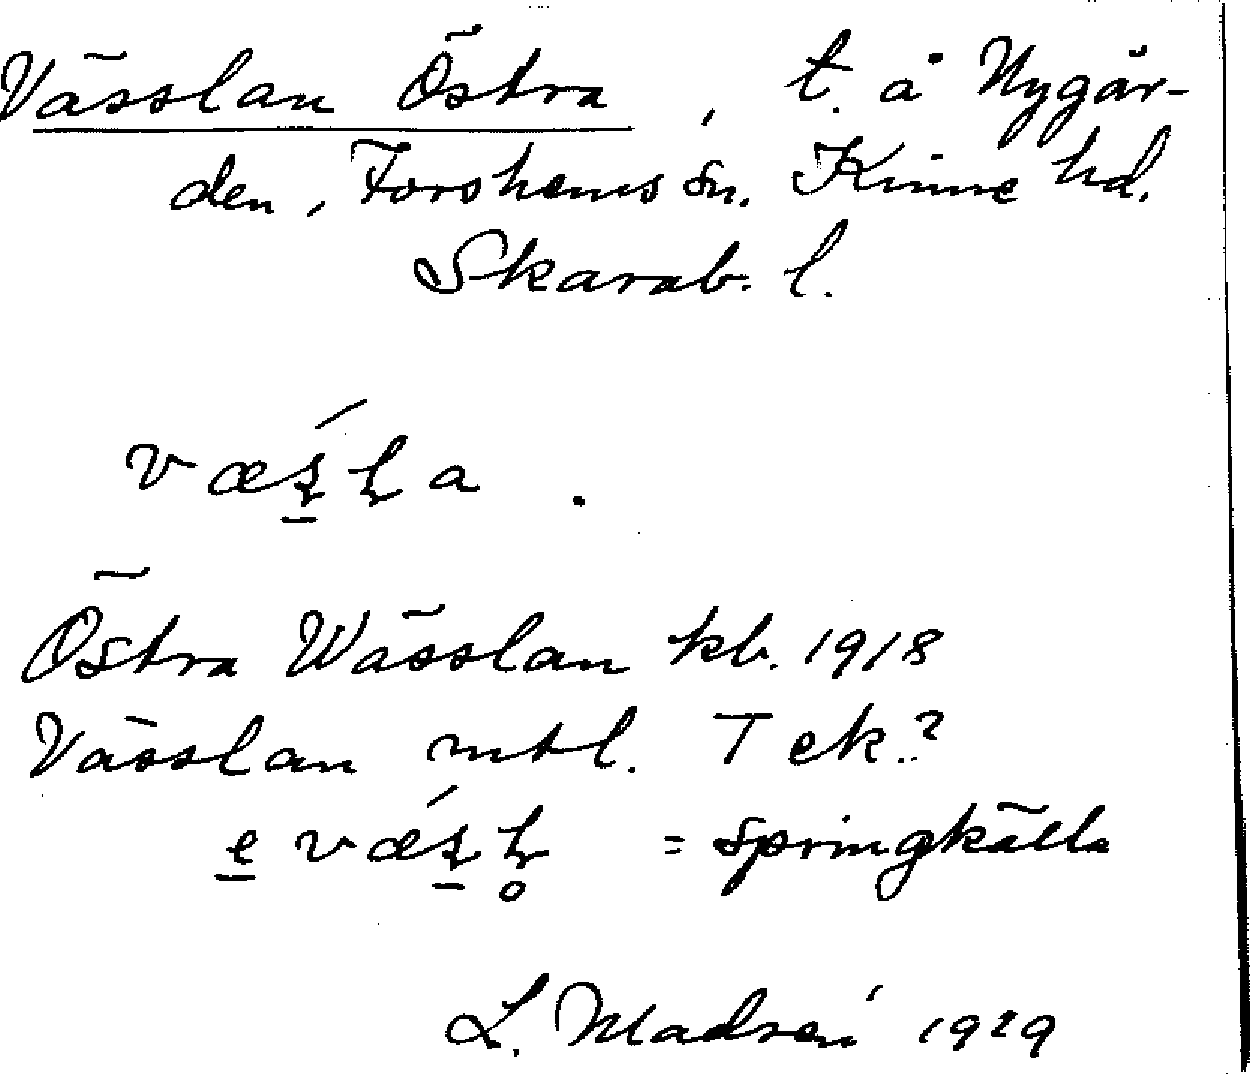 Vässlan Östra, t. å Nygår-
den, Forshems sn. Kinne hd.
Skarab. l.
Östra Wässlan kb. 1918
Vässlan mtl. T ek.?
= springkälla
L. Modren 1929